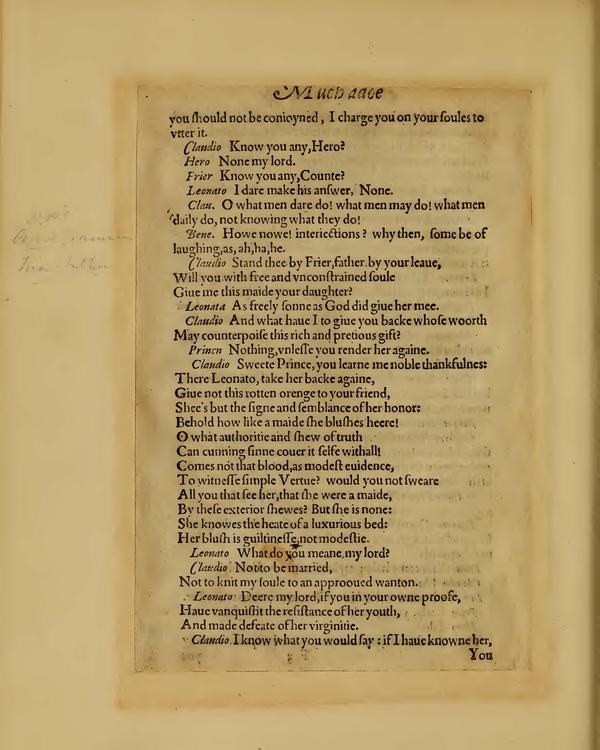 Much adoe
you ſhould not be conioyned, I charge you on your ſoules to
vtter it.
Claudio Know you any,Hero?
Hero None my lord.
Frier Know you any,Counte?
Leonato I dare make his anſwer, None.
Clau. O what men dare do! what men may do! what men
daily do, not knowing what they do!
Bene. Howe nowe! interiections? why then, ſome be of
laughing,as, ah,ha,he.
Claudio Stand thee by Frier,father,by your leaue,
Will you with free and vnconſtrained ſoule
Giue me this maide your daughter?
Leonata As freely ſonne as God did giue her mee.
Claudio And what haue I to giue you backe whoſe woorth
May counterpoiſe this rich and pretious gift?
Princn Nothing,vnleſſe you render her againe.
Claudio Sweete Prince, you learne me noble thankfulnes:
There Leonato, take her backe againe,
Giue not this rotten orenge to your friend,
Shee's but the ſigne and ſemblance of her honor:
Behold how like a maide ſhe bluſhes heere!
O what authoritie and ſhew of truth
Can cunning ſinne couer it ſelfe withall!
Comes not that blood,as modeſt euidence,
To witneſſe ſimple Vertue? would you not ſweare
All you that ſee her,that ſhe were a maide,
By theſe exterior ſhewes? But ſhe is none:
She knowes the heate of a luxurious bed:
Her bluſh is guiltineſſe,not modeſtie.
Leonato What do you meane,my lord?
Claudio Not to be married,
Not to knit my ſoule to an approoued wanton.
Leonato Deere my lord,if you in your owne proofe,
Haue vanquiſht the reſiſtance of her youth,
And made defeate of her virginitie.
Claudio I know what you would ſay : if I haue knowne her,
You